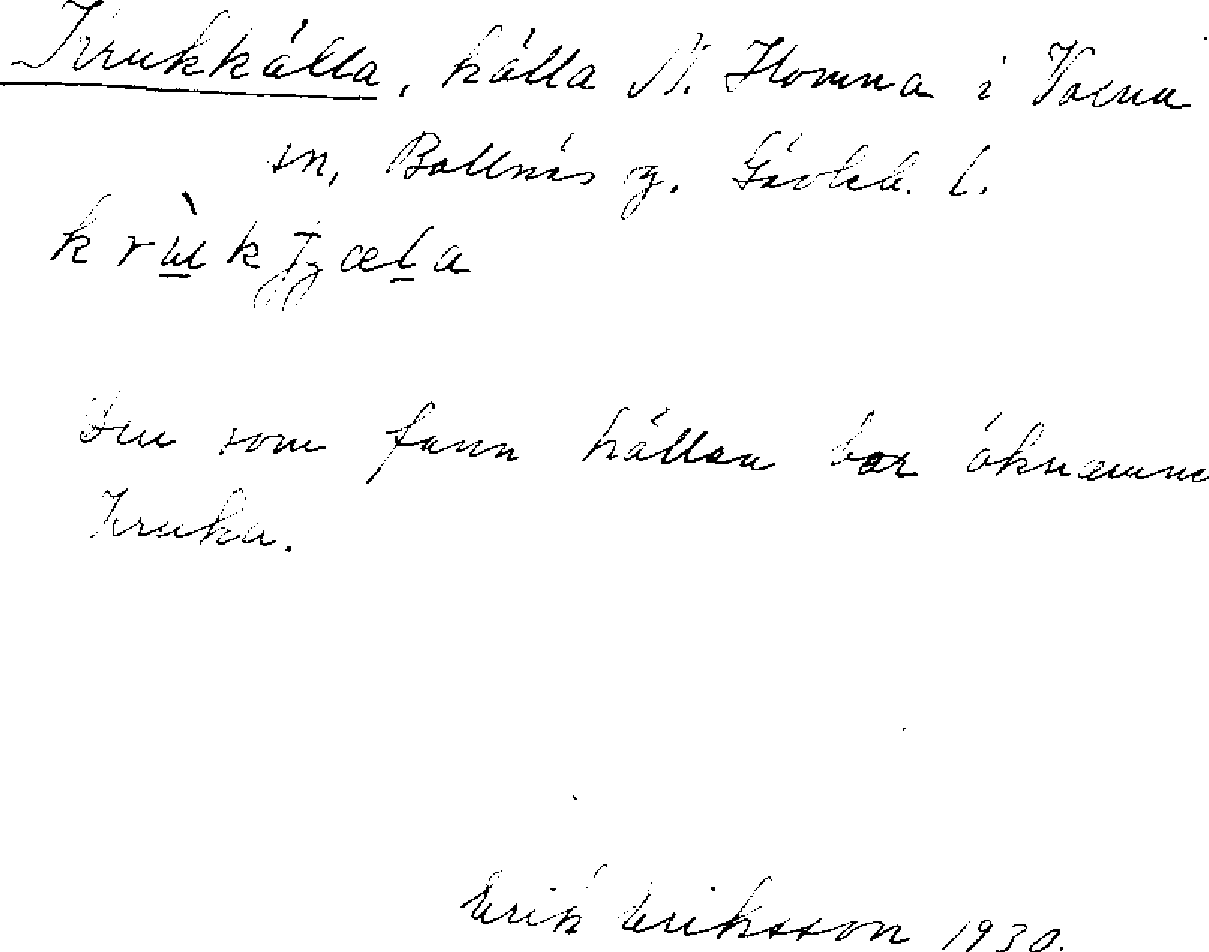 Krukkälla, källa N. Homna i Voxna
sn, Bollnäs g. Gävleb. l.
Den som fann källan bar öknamne
Kruka.
Erik Eriksson 1930.